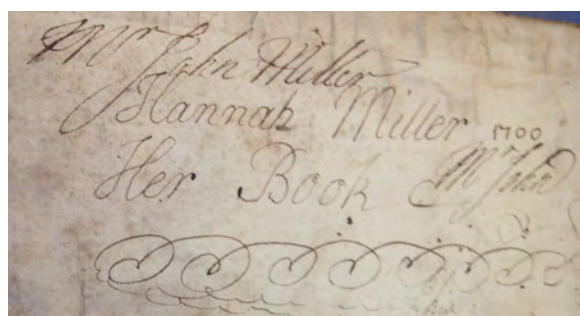 Mr John Miller
Hannah Miller 1700
Her Book Mr John